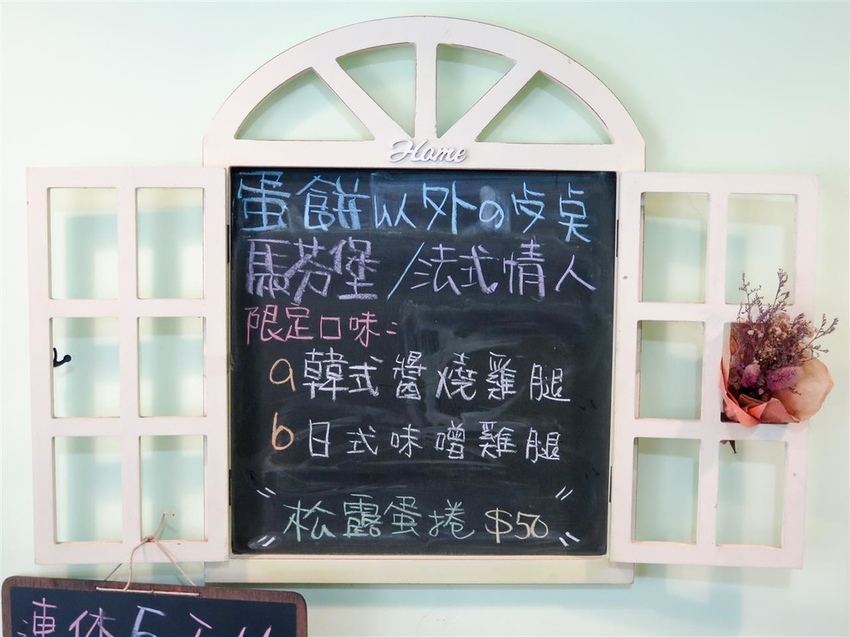 Home
蛋餅以外の早桌
馬芬堡/法式情人
限定口味:
a韓式醬燒雞腿
b日式味噌雞腿
松露蛋捲 $50
連休5